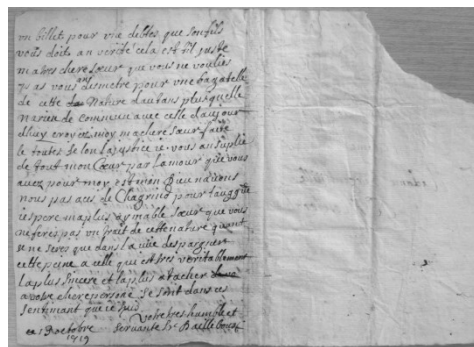 un billet pour une debtes que son fils
vous doit an verité cela est til juste
ma tres chere sœur que vous ne voulies
pas vous ans dismetre pour une bagatelle
de cette nature dautans plus quelle
na rien de commun avec celle daujour
dhuy croyez moy ma chere sœur faite
le toutes selon la justice je vous an suplie
de tout mon Cœur par lamour que vous
avez pour moy et mon Dieu navons
nous pas aces de Chagrins pour
jespere ma plus aymable sœur que vous
ne feres pas un trait de cette nature quant
se ne seres que dans la vüe despargner
cette peine a celle qui est tres veritablement
la plus sincere et la plus atacher
a votre chere persone se sont dans ces
sentimant que je suis
votre tres humble et
ce 13 octobre servante Sr
1719